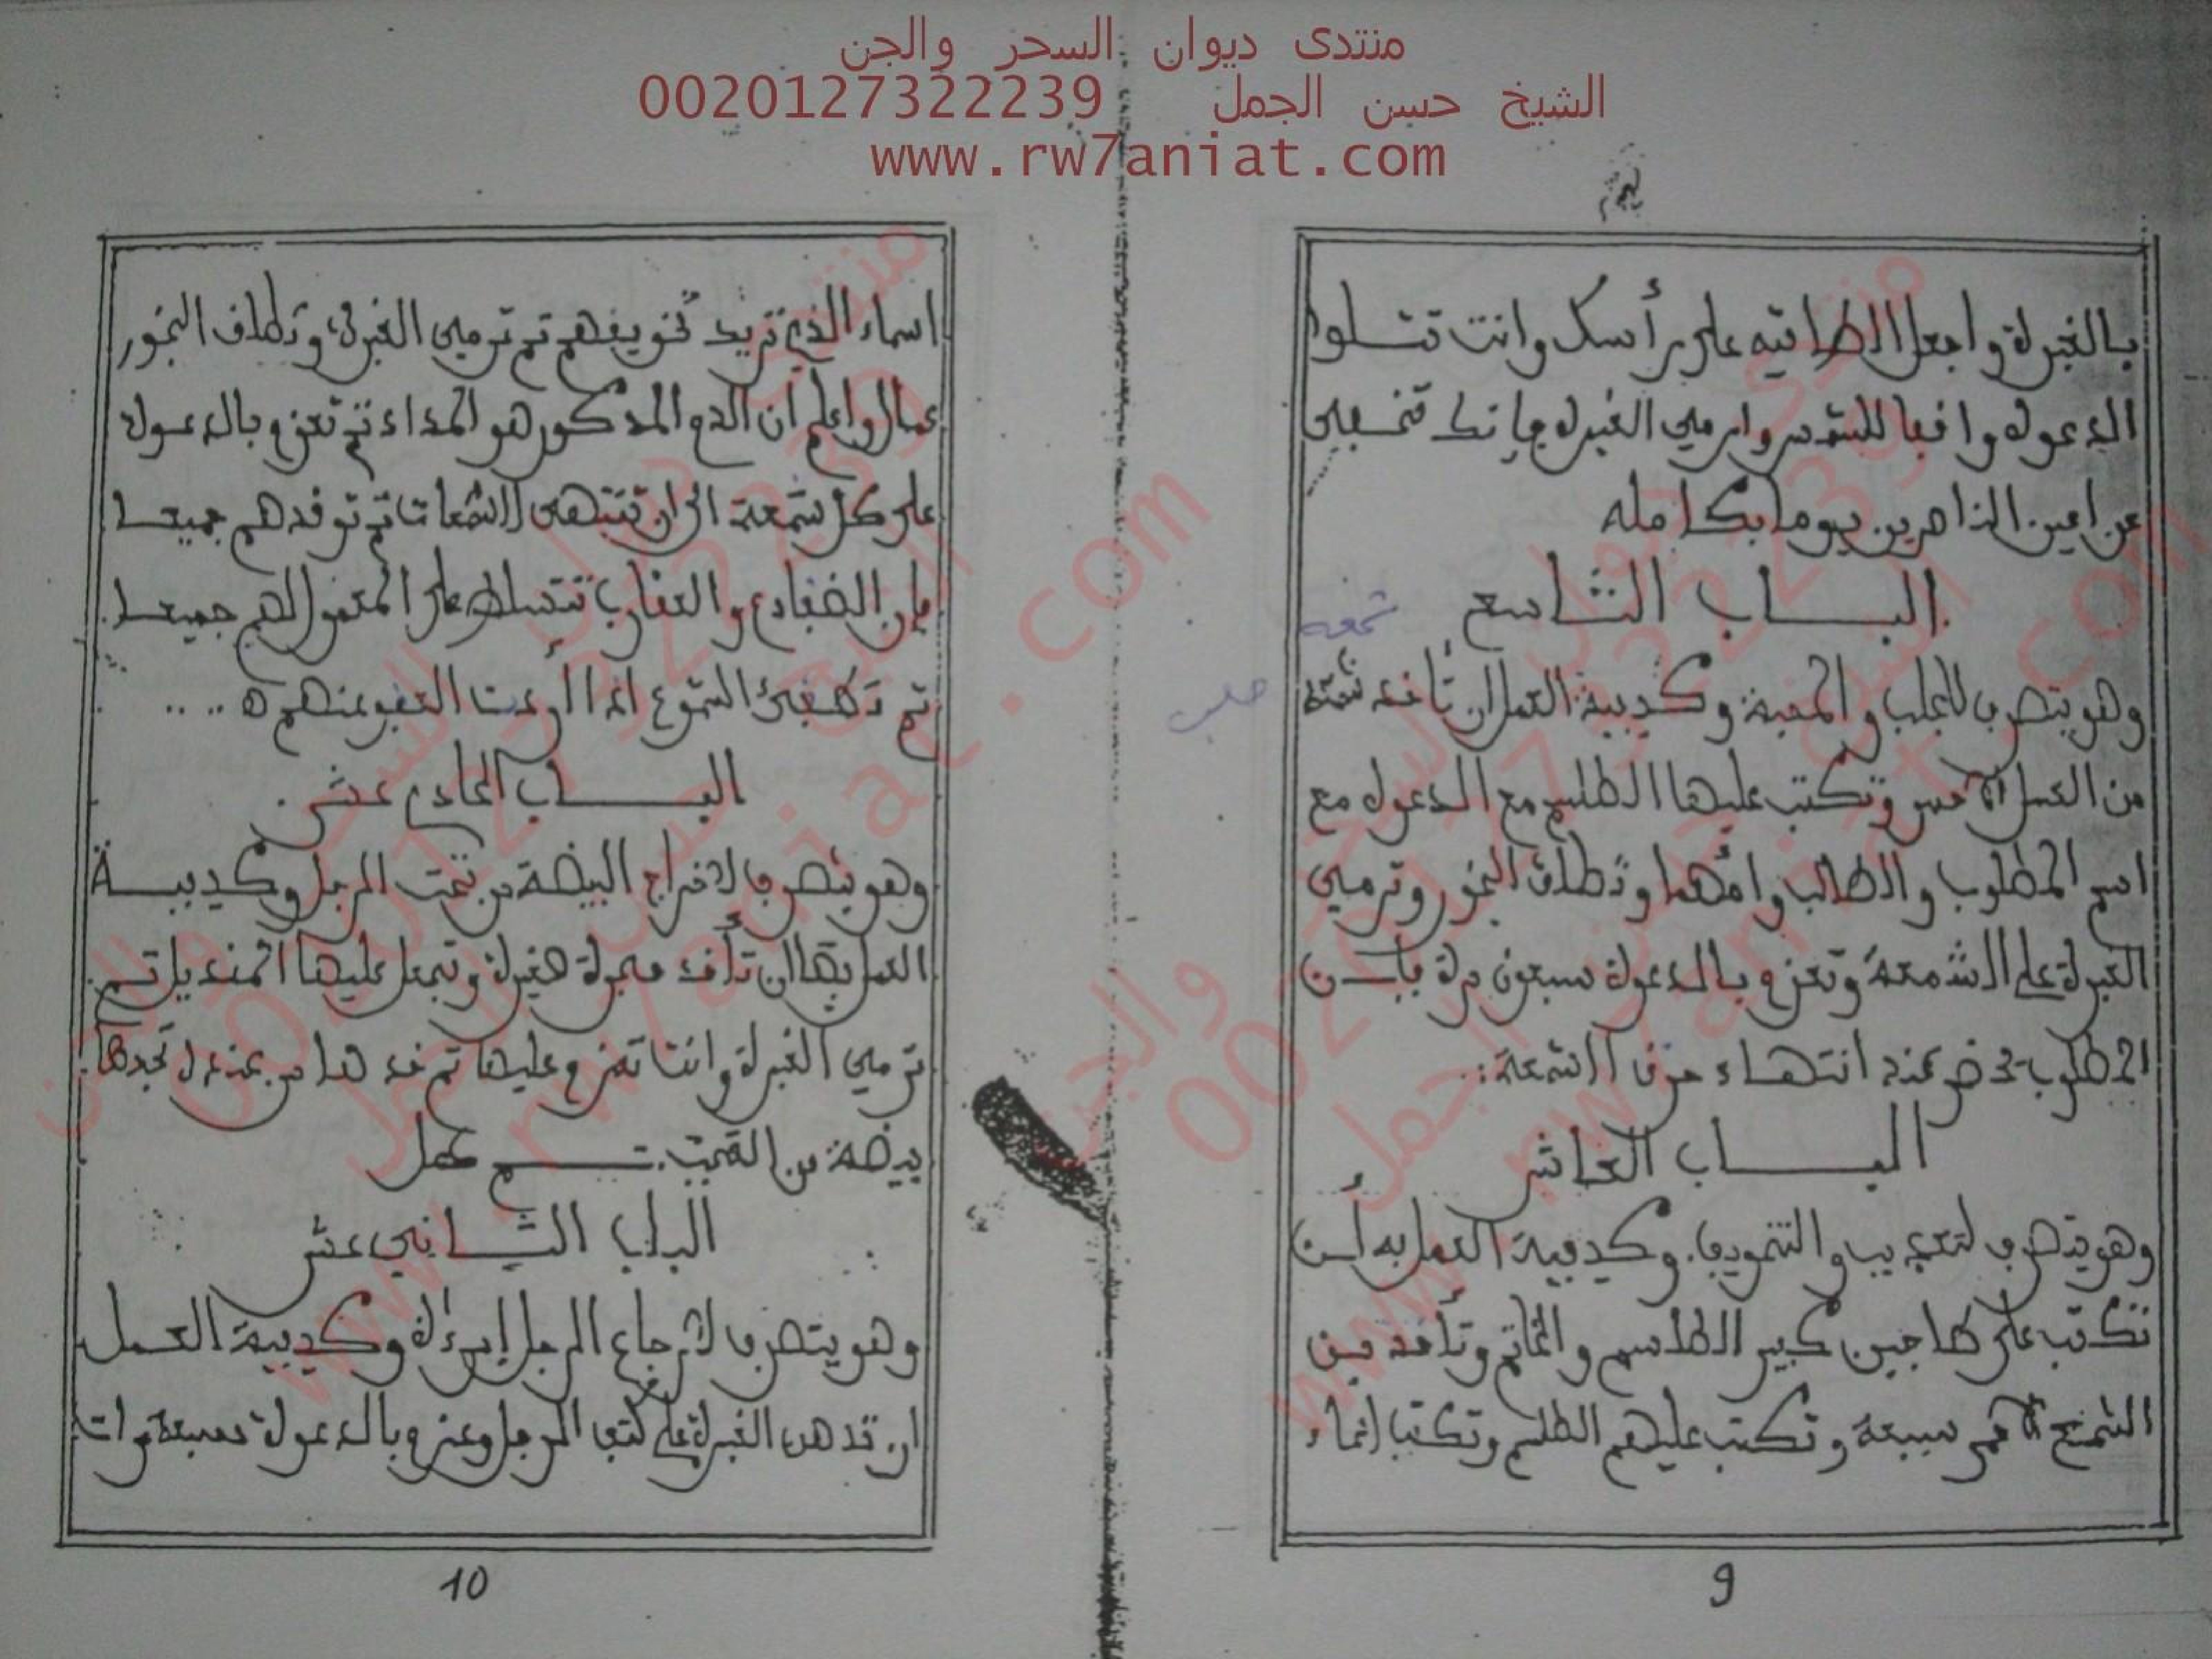 منتدى ديوان السحر والجن
الشيخ حسن الجمل 0020127322239
www.rw7aniat.com
بالغبرة واجعل الطاقيه على رأسك وانت تتلوا
الدعوة واقفا للشمس وارمي الغبرة فإنك تختفي
عن اعين الناظرين يوما بكامله
البـــاب التاسع
شمعه
وهو يتصرف للجلب والمحبة وكيفية العمل ان تأخذ شمعة
جلب
من العسل وتكتب عليها الطلسم مع الدعوة مع
اسم المطلوب والطالب وامهما وتطلق البخور وترمي
الغبرة على الشمعة وتعزم بالدعوة سبعون مرة فإن
المطلوب يحضر عند انتهاء حرق الشمعة:.
البـــاب العاشر
وهو يتصرف لتعذيب والتخويف. وكيفية العمل به أن
تكتب على طاجين كبير الطلاسم والخاتم وتأخذ من
الشمع الأحمر سبعة وتكتب عليهم الطلسم وتكتب اسماء
9
اسماء الذين تريد تخويفهم ثم ترمي الغبرة، وتطلق البخور
عمال واعلم ان الدم المذكور هو المداد ثم تعزم بالدعوة
على كل شمعة الى ان تنتهي الشمعات ثم توقدهم جميعا
فإن الضفادع والعقارب تتسلط على المعمول لهم جميعا.
ثم تطفئ الشموع اذا أردت العفو عنهم ه ....
البـــاب الحادي عشر.
وهو يتصرف لاخراج البيضة من تحت الرجل وكيفيـــة
العمل بها ان تأخذ مجرة صغيرة وتجعل عليها المنديل ثم
ترمي الغبرة وانت تعزم عليها ثم خذها من عندك تجدها
بيضة من التحت. تـــم عمل
الباب الثـــاني عشر
وهو يتصرف لإرجاع الرجل إمرأة وكيفية العمل
ان تدهن الغبرة على كتف الرجل وعزم بالدعوة سبعة مرات
10